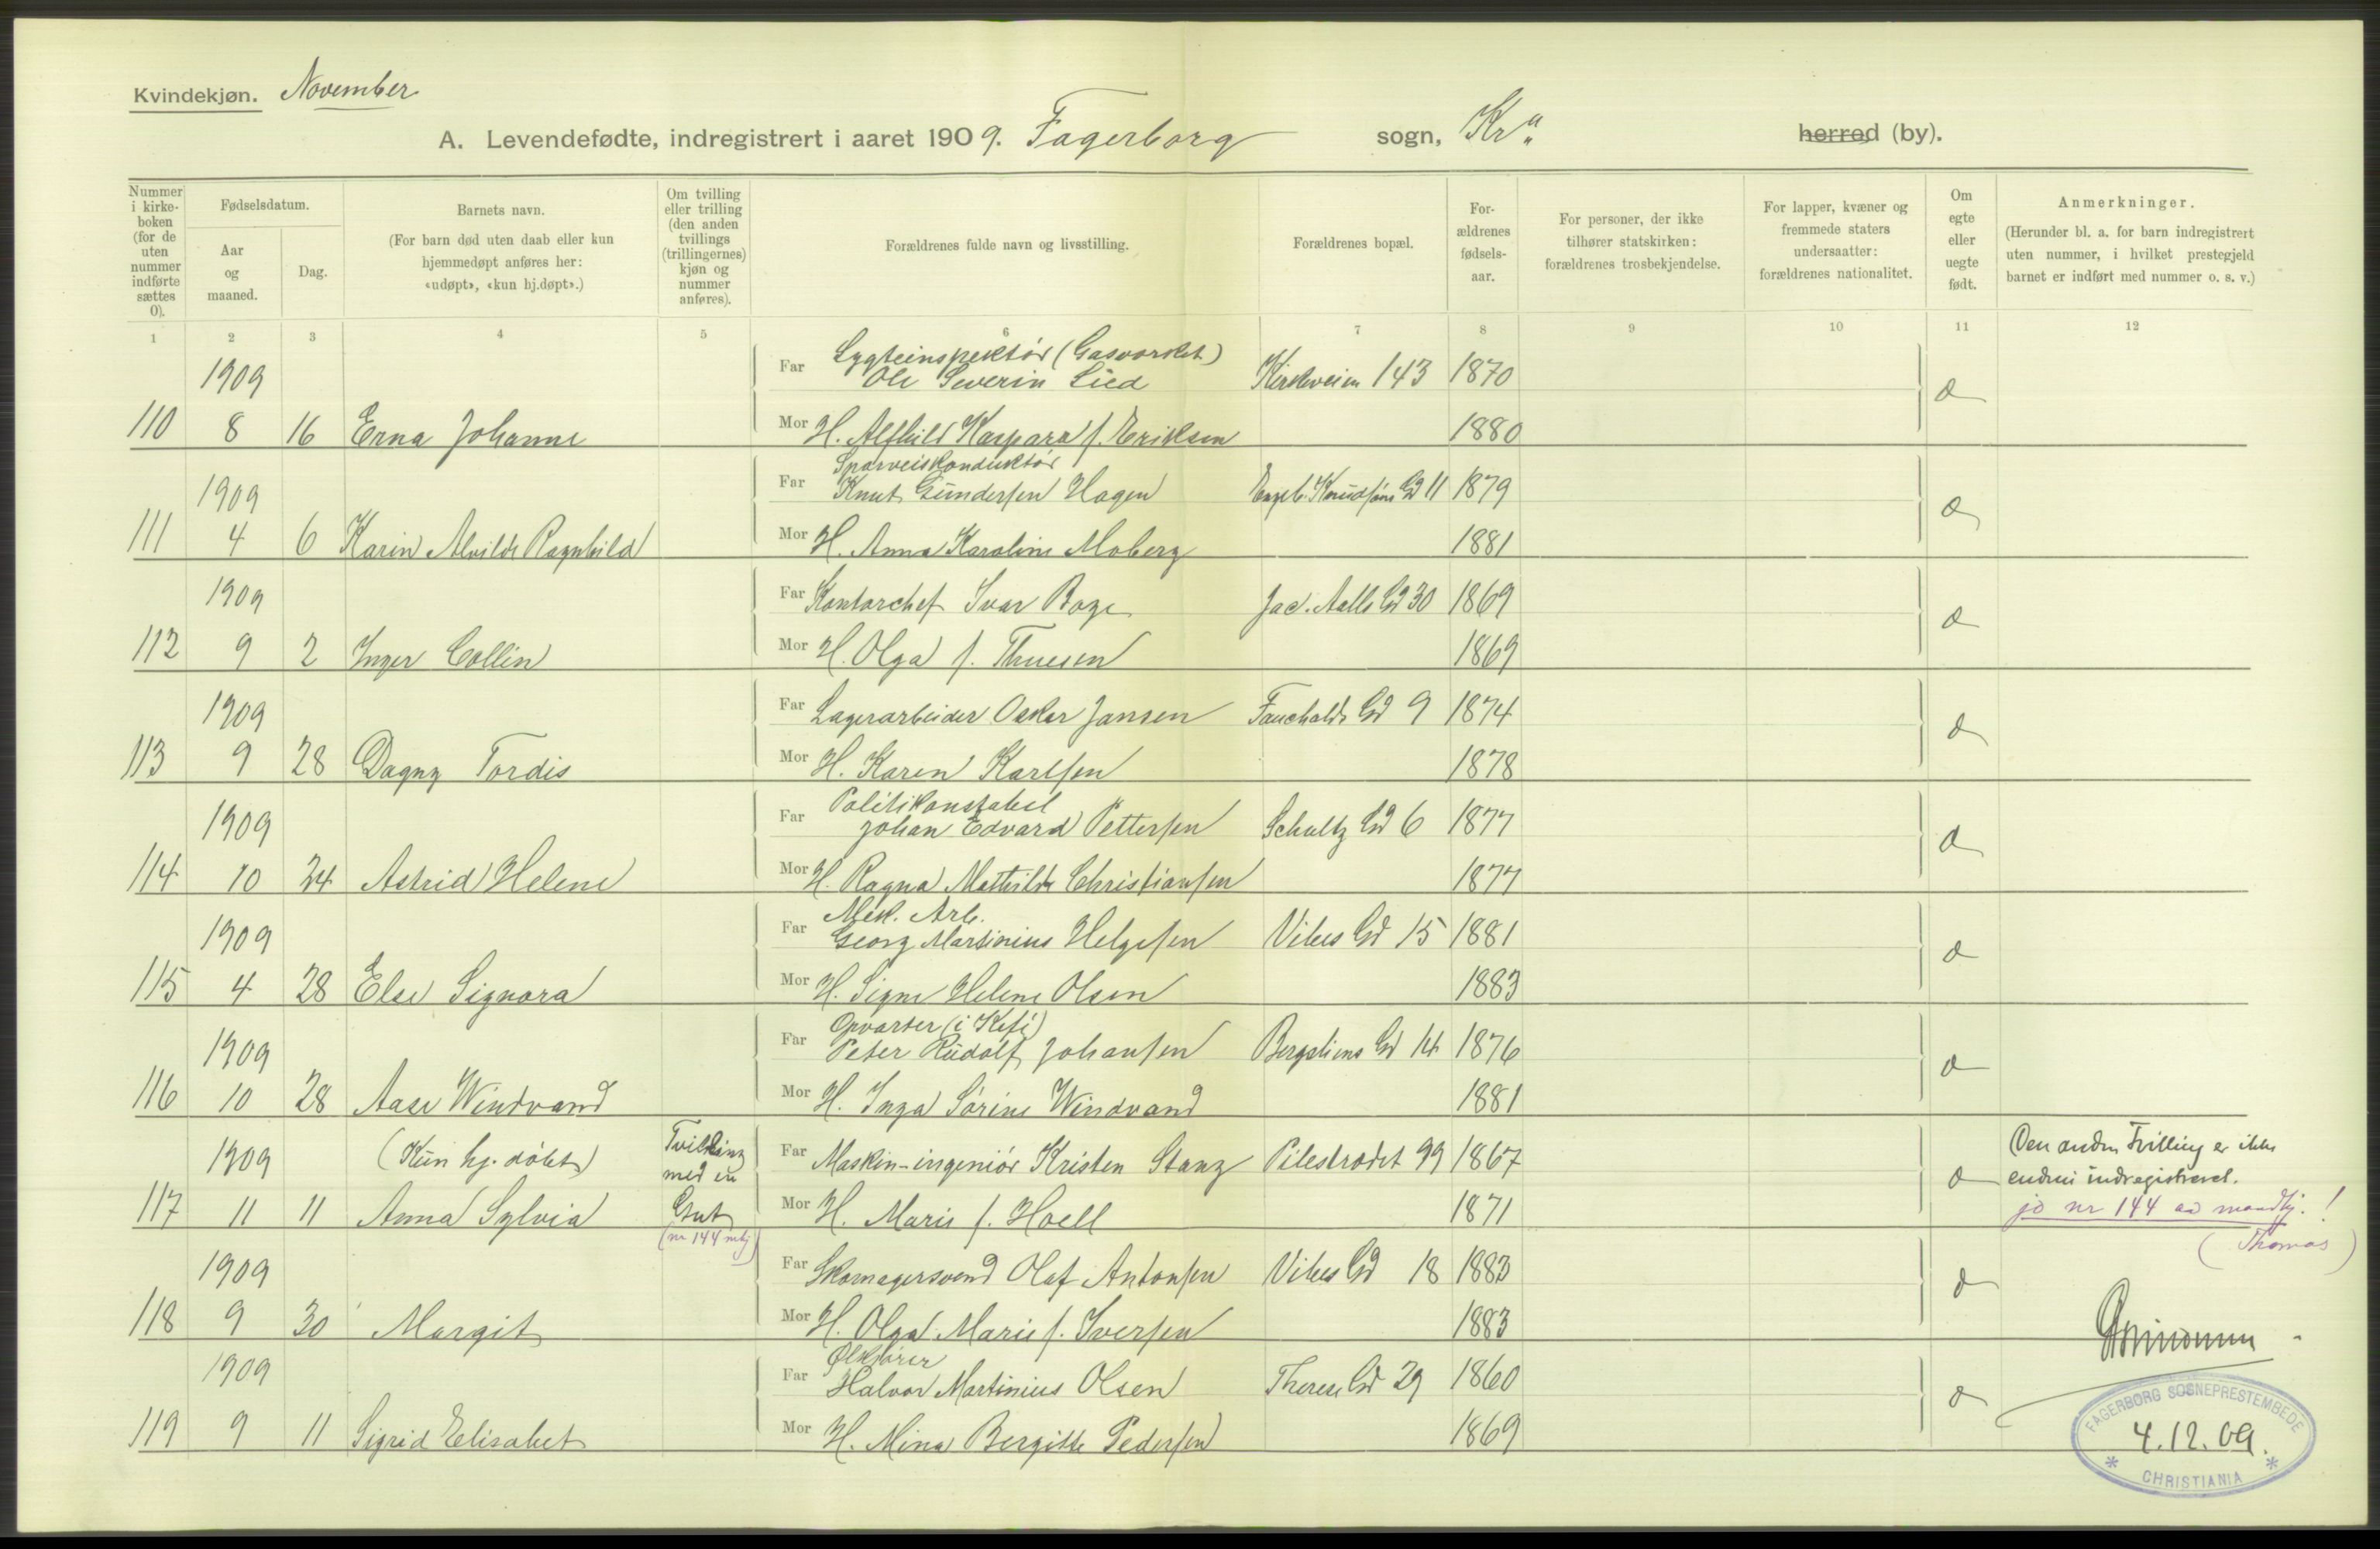 Kvindekjøn. November
A. Levendefødte, indregistrert i aaret 1909. Fagerborg sogn, Kr.a herred (by).
Nummer i kirke-boken (for de uten nummer indførte sættes 0).
Fødselsdatum.
Aar og maaned.
Dag.
Barnets navn.
(For barn død uten daab eller kun hjemmedøpt anføres her: «udøpt», «kun hj.døpt».)
Om tvilling eller trilling (den anden tvillings (trillingernes) kjøn og nummer anføres).
Forældrenes fulde navn og livsstilling.
Forældrenes bopæl.
For-ældrenes fødsels-aar.
For personer, der ikke tilhører statskirken: forældrenes trosbekjendelse.
For lapper, kvæner og fremmede staters undersaatter: forældrenes nationalitet.
Om egte eller uegte født.
Anmerkninger.
(Herunder bl. a. for barn indregistrert uten nummer, i hvilket prestegjeld barnet er indført med nummer o. s. v.)
1 2 3 4 5 6 7 8 9 10 11 12
Lygteinspektör (Gasverket)
1909 Far Ole Severin Lied Kirkeveien 143 1870
110 8 16 Erna Johanne Mor H. Alfhild Kaspara f. Eriksen 1880
Sporveiskonduktör
1909 Far Knut Gundersen Hagen Engeb. Knudsöns Gd 11 1879
111 4 6 Karin Alvilde Ragnhild Mor H. Anna Karoline Moberg 1881
1909 Far Kontorchef Ivar Boge Jac. Aalls Gd 30 1869
112 9 2 Inger Collin Mor H. Olga f. Thuesen 1869
1909 Far Lagerarbeider Oskar Jansen Fauchalds Gd 9 1874
113 9 28 Dagny Tordis Mor H. Karen Karlsen 1878
Politikonstabel
1909 Far Johan Edvard Pettersen Schultz Gd 6 1877
114 10 24 Astrid Helene Mor H. Ragna Mathilde Christiansen 1877
Mek. Arb.
1909 Far Georg Martinius Helgesen Vibes Gd 15 1881
115 4 28 Else Signora Mor H. Signe Helene Olsen 1883
Opvarter (i Kafé)
1909 Far Peter Rudolf Johansen Bergsliens Gd 14 1876
116 10 28 Aase Windvand Mor H. Inga Sörine Windvand 1881
1909 (Kun hj. döbt) Tvilling med en Far Maskin-ingeniör Kristen Stang Pilestrædet 99 1867 Den anden Tvilling er ikke endnu indregistreret.
117 11 11 Anna Sylvia Gut Mor H. Marie f. Hoell 1871 jo nr 144 av mandkj.!
(nr 144 mkj) (Thomas)
1909 Far Skomagersvend Olaf Antonsen Vibes Gd 18 1883
118 9 30 Margit Mor H. Olga Marie f. Iversen 1883
Ølkjører
1909 Far Halvor Martinius Olsen Therese Gd 29 1860
119 9 11 Sigrid Elisabet Mor H. Mina Bergitte Pedersen 1869
FAGERBORG SOGNEPRESTEMBEDE
4.12.09.
* CHRISTIANIA *